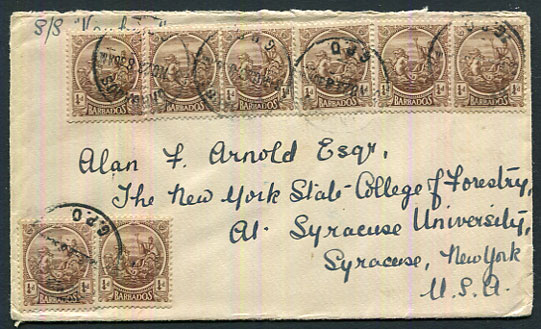 S/S
G.P.O
G.P.O
¼d BARBADOS ¼d
¼d BARBADOS ¼d
¼d BARBADOS ¼d
¼d BARBADOS ¼d
¼d BARBADOS ¼d
¼d BARBADOS ¼d
Alan F. Arnold Esqr,
The New York State College of Forestry,
At Syracuse University,
Syracuse, New York
U.S.A.
G.P.O
¼d BARBADOS ¼d
¼d BARBADOS ¼d